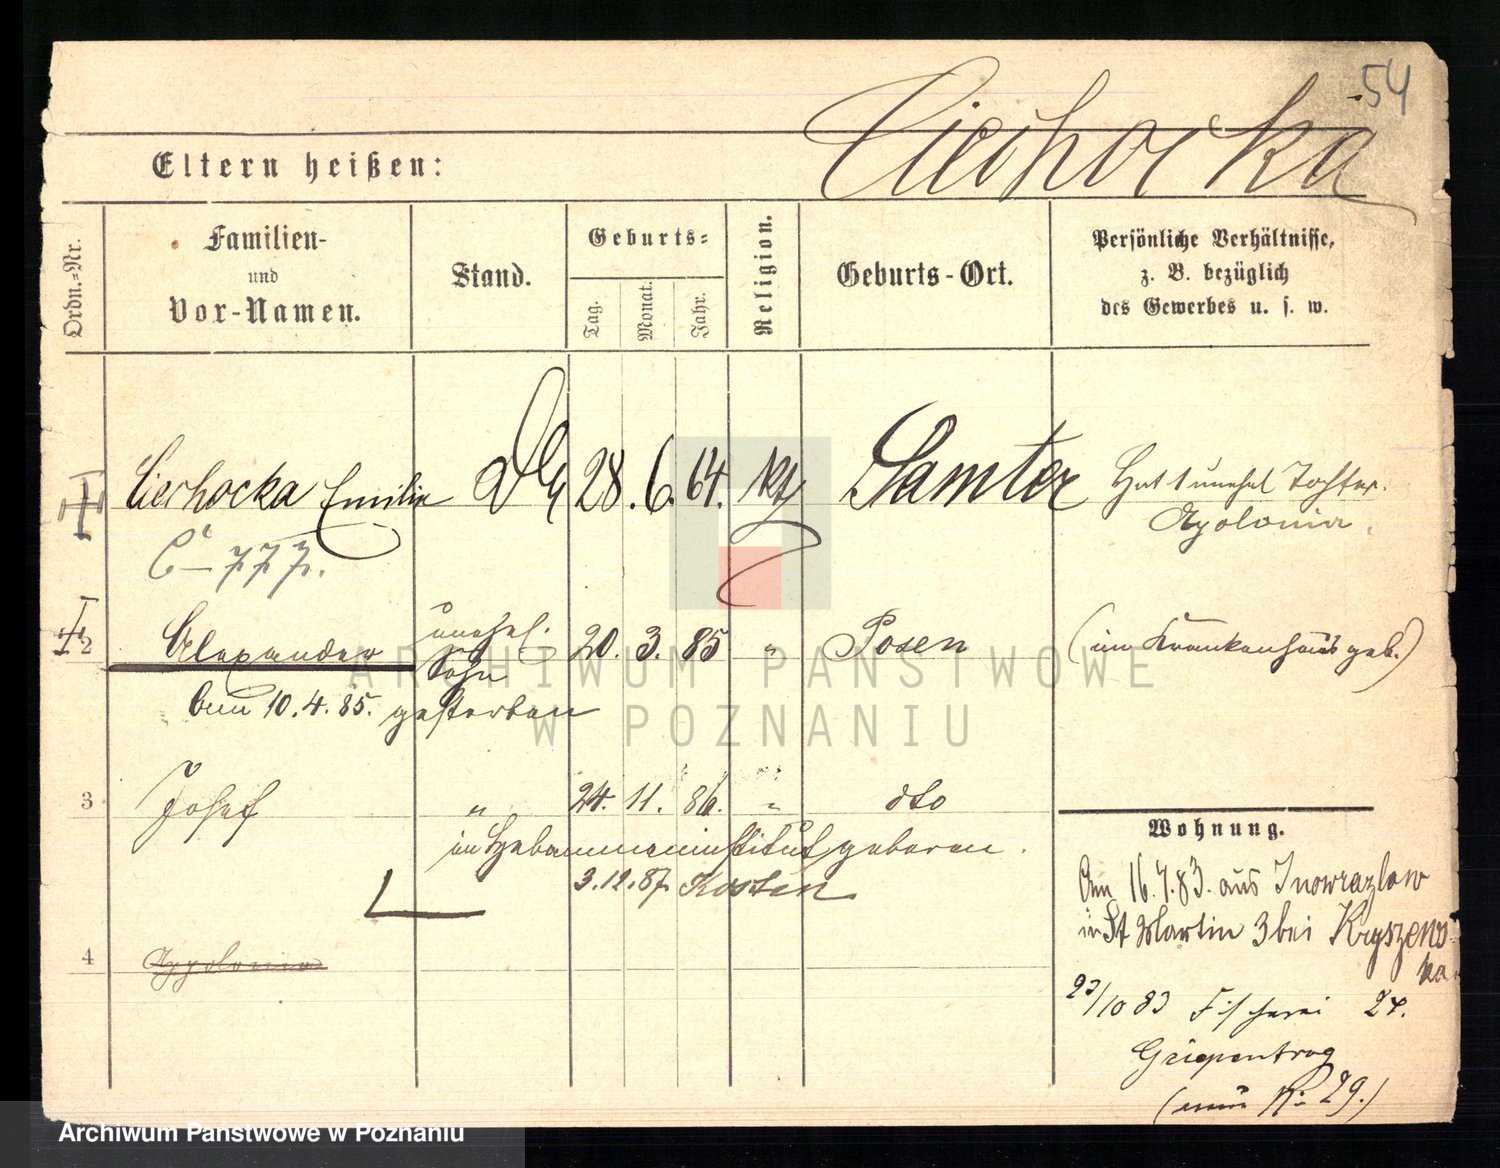 54
Ciechocka
Eltern heißen:
Ordn.-Nr.
Familien-
und
Vor-Namen.
Stand.
Geburts-
Tag.
Monat.
Jahr.
Religion.
Geburts-Ort.
Persönliche Verhältnisse,
z. B. bezüglich
des Gewerbes u. s. w.
Ciechocka Emilie 28. 6. 64. kt Samter Hat 1 unehel Tochter.
Apolonia.
C 777.
2 Alexander unehel. 20. 3. 85 " Posen (im Krankenhaus geb.)
Sohn
am 10.4.85. gestorben
3 Josef " 24. 11. 86. " dto
im Hebammeninstitut geboren.
3.12.87. Kosten
4 Appolonia
Wohnung.
Am 16.4.83. aus Inowrazlaw
in St Martin 3 bei Kryszews
ka
23/10 83 Fischerei 24.
Griepentrog
(nun No 29.)
ARCHIWUM PAŃSTWOWE
W POZNANIU
Archiwum Państwowe w Poznaniu